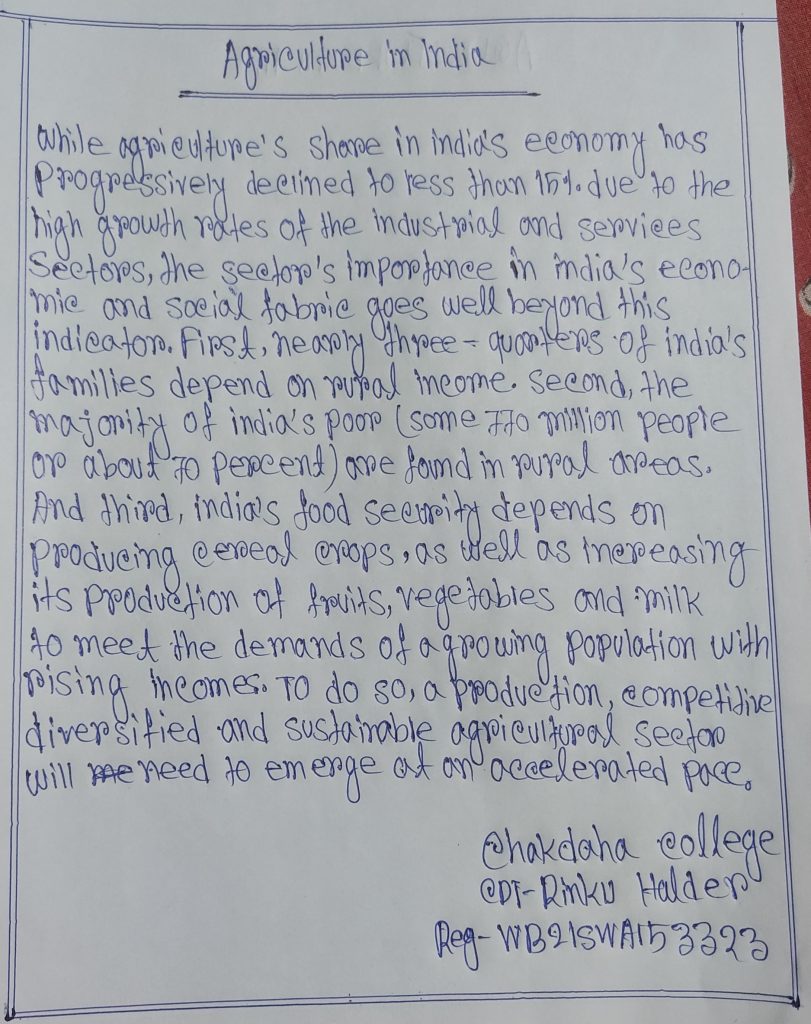 Agriculture in India
While agriculture's share in india's economy has
Progressively declined to less than 15%. due to the
high growth rates of the industrial and services
Sectors, the sector's importance in india's econo-
mic and social fabric goes well beyond this
indicator. First, nearly three - quarters of india's
families depend on rural income. Second, the
majority of india's poor (some 770 million people
or about 70 percent) are found in rural areas.
And third, india's food security depends on
producing cereal crops, as well as increasing
its production of fruits, vegetables and milk
to meet the demands of a growing population with
rising incomes. To do so, a production, competitive
diversified and sustainable agricultural sector
will need to emerge at an accelerated pace.
Chakdaha college
CDT- Rinku Halder
Reg- WB21SWA153323